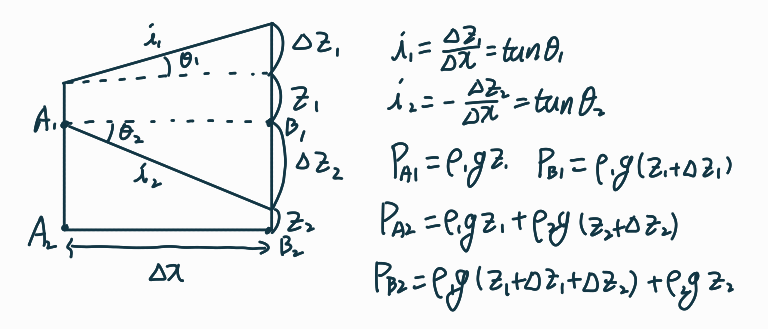 i₁
θ₁
ΔZ₁
Z₁
A₁
θ₂
B₁
i₂
ΔZ₂
A₂
Z₂
B₂
Δx
i₁ = ΔZ₁/Δx = tanθ₁
i₂ = - ΔZ₂/Δx = tanθ₂
P_A1 = ρ₁gz₁ P_B1 = ρ₁g(z₁+Δz₁)
P_A2 = ρ₁gz₁ + ρ₂g(z₂+Δz₂)
P_B2 = ρ₁g(z₁+Δz₁+Δz₂) + ρ₂gz₂